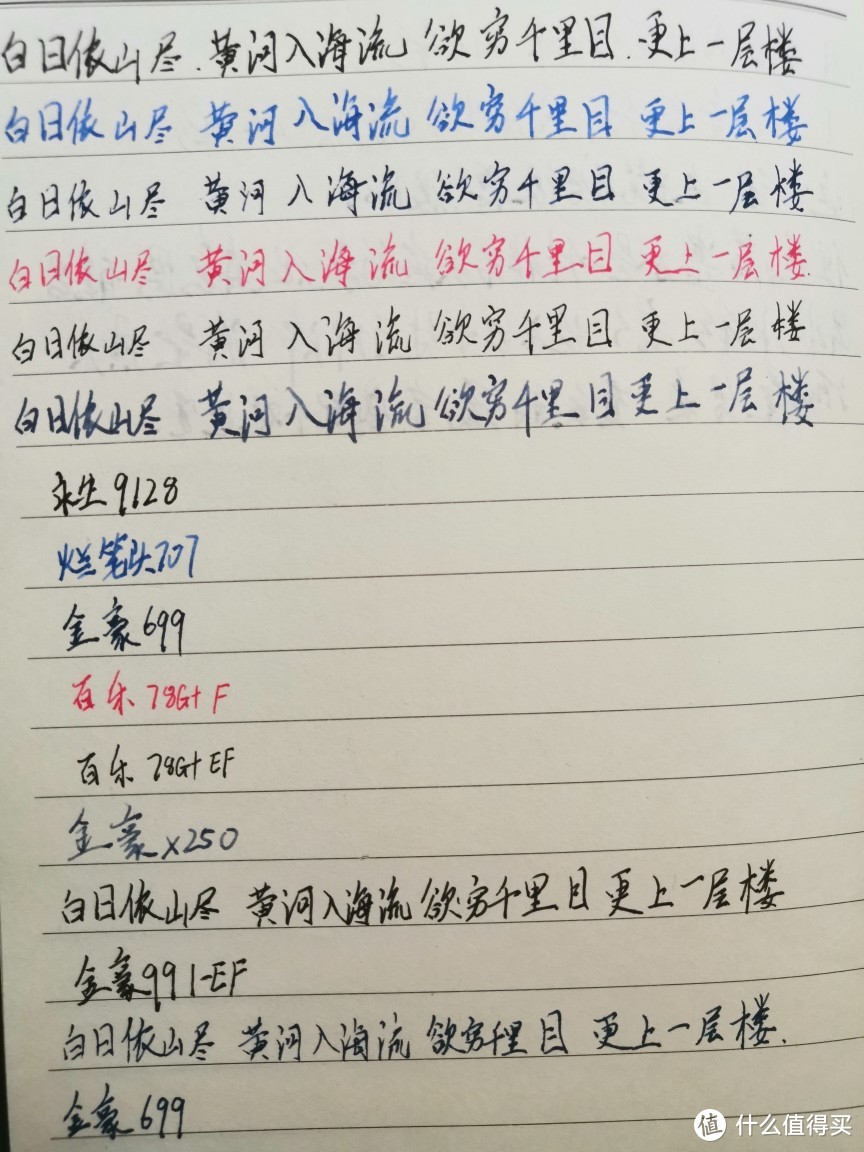 白日依山尽.黄河入海流 欲穷千里目.更上一层楼
白日依山尽 黄河入海流 欲穷千里目 更上一层楼
白日依山尽 黄河入海流 欲穷千里目 更上一层楼
白日依山尽 黄河入海流 欲穷千里目 更上一层楼.
白日依山尽 黄河入海流 欲穷千里目 更上一层楼
白日依山尽 黄河入海流 欲穷千里目 更上一层楼
永生9128
烂笔头707
金豪699
百乐78G+ F
百乐78G+ EF
金豪x250
白日依山尽 黄河入海流 欲穷千里目 更上一层楼
金豪991-EF
白日依山尽 黄河入海流 欲穷千里目 更上一层楼.
金豪699
值 什么值得买